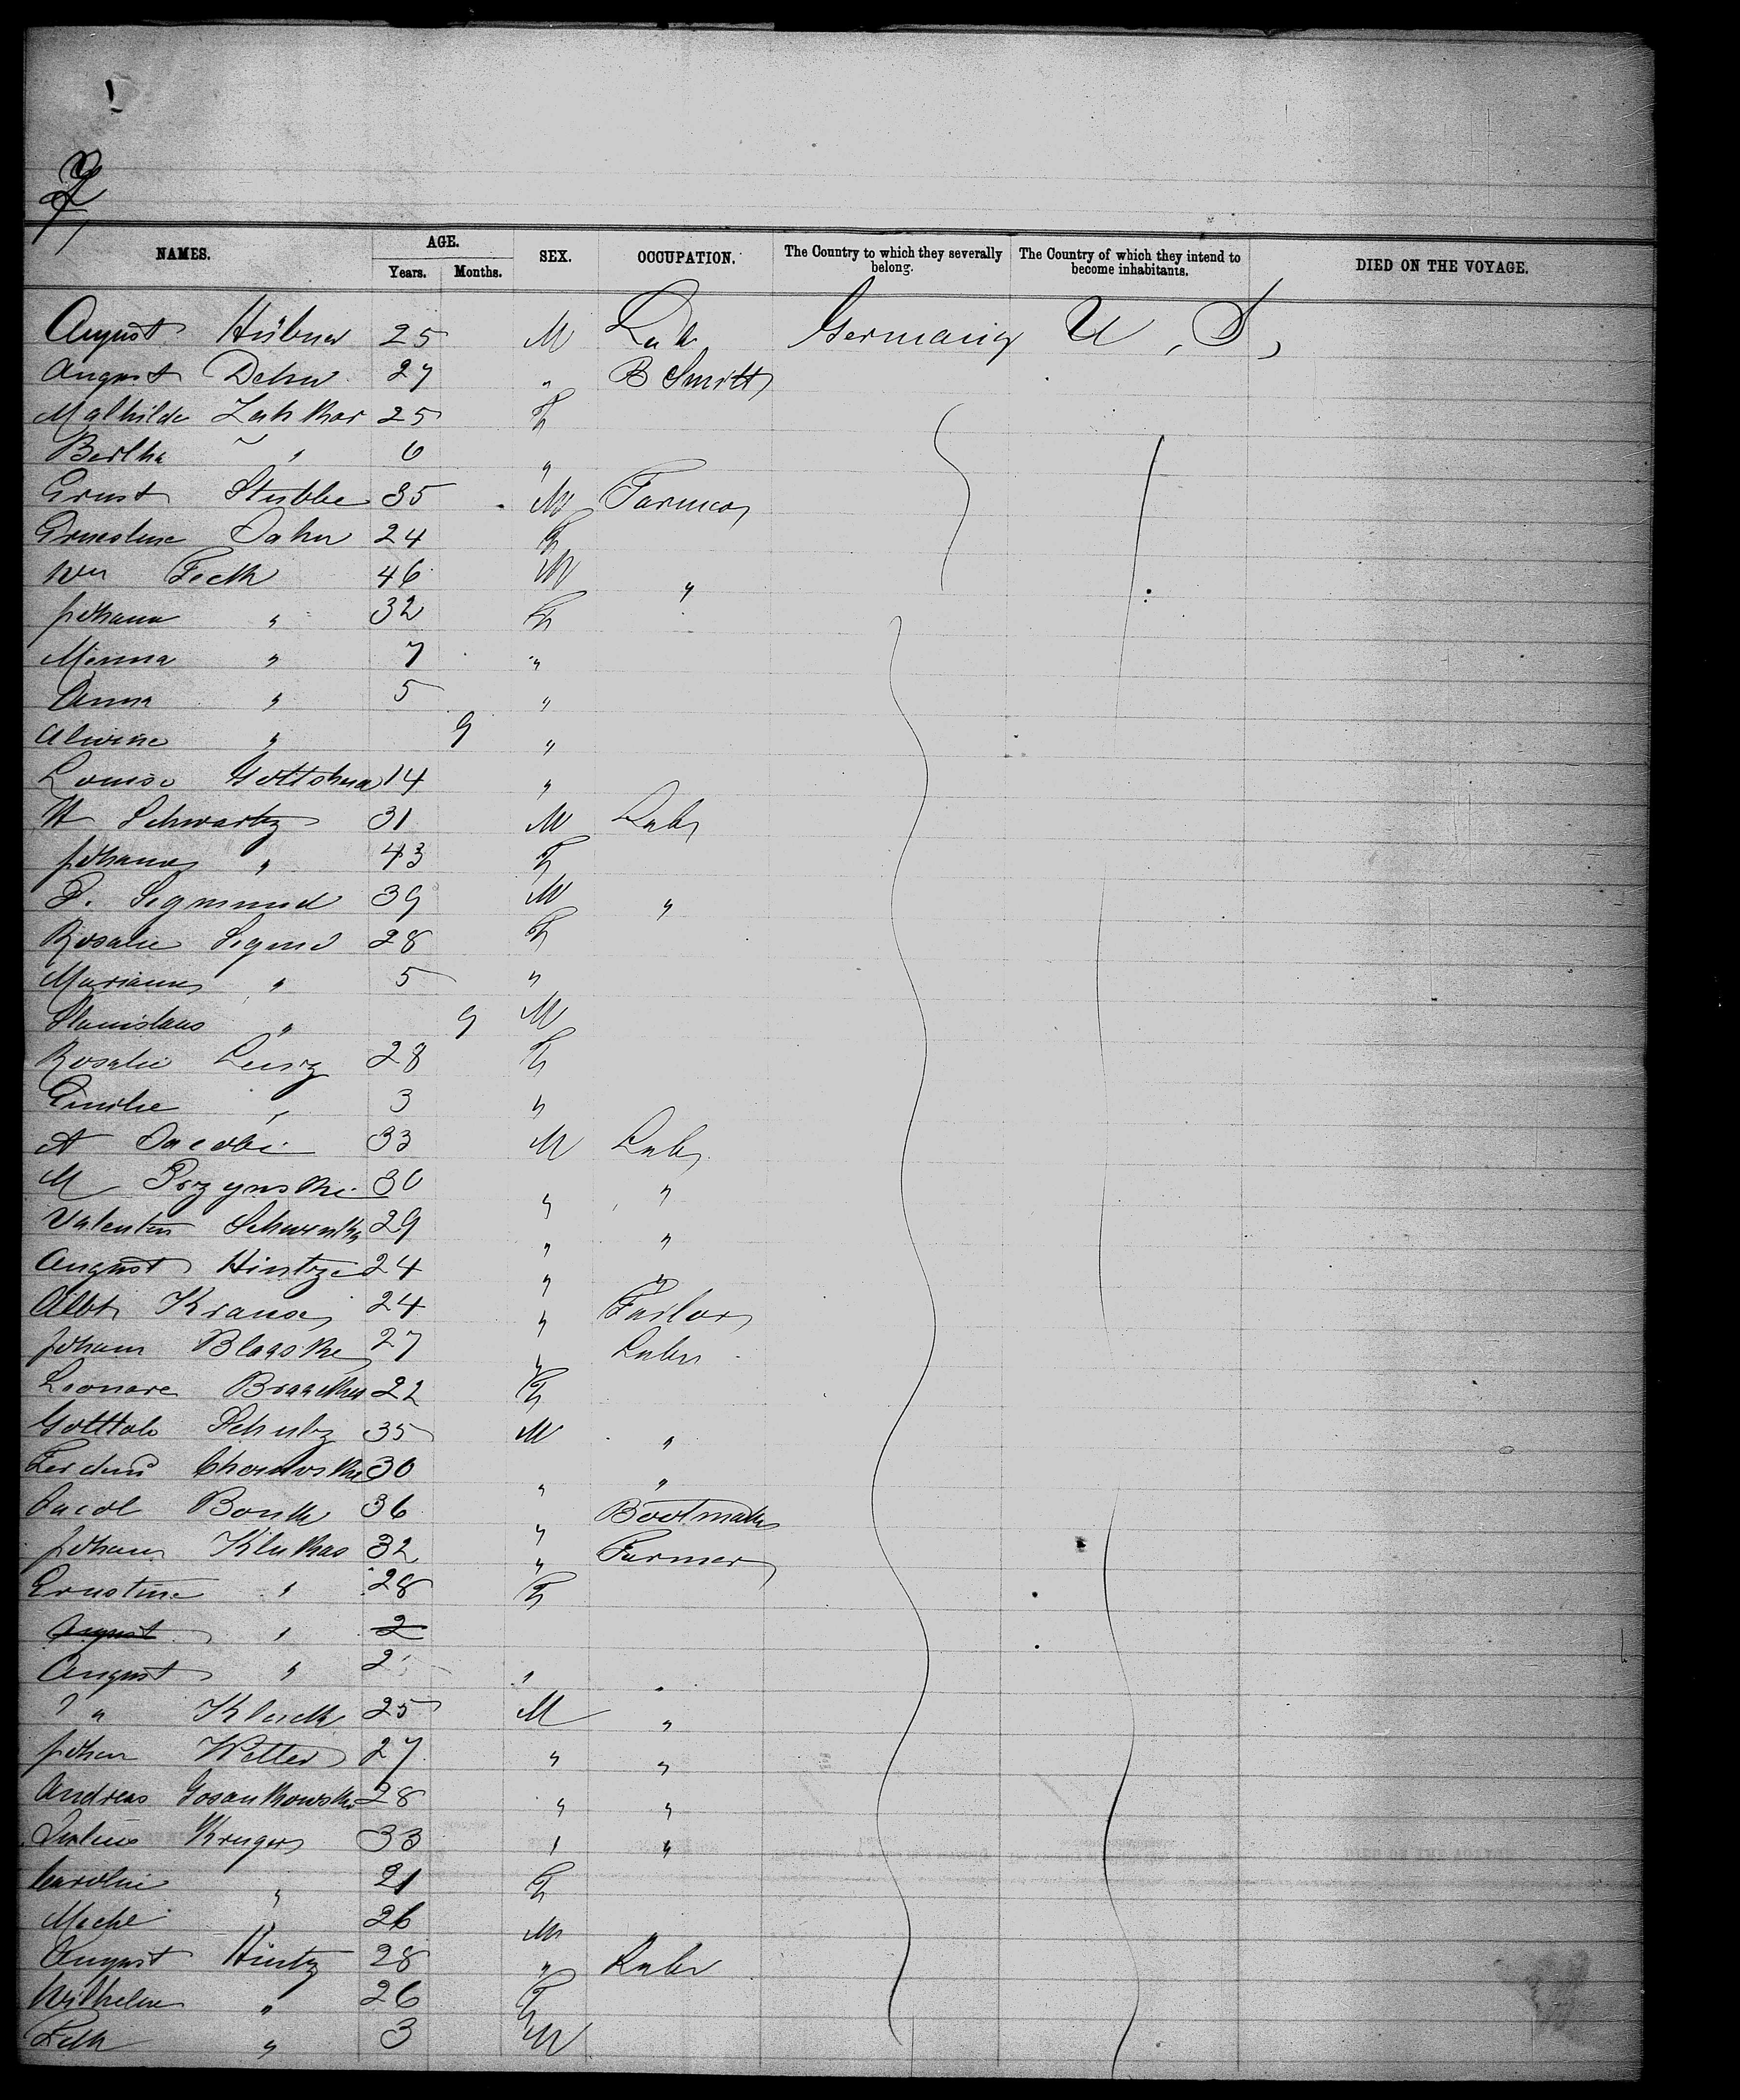 NAMES. AGE. SEX. OCCUPATION. The Country to which they severally belong. The Country of which they intend to become inhabitants. DIED ON THE VOYAGE.
Years. Months.
August Hübner 25 M Lab Germany U, S,
August Dehn 27 " B Smith
Mathilde 25 F
Bertha " 6 "
Ernst Stubbe 35 M Farmer
Ernestine Dahn 24 F
Wm Feck 46 M "
Johann " 32 F
Minna " 7 "
Anna " 5 "
Alwine " 9 "
Louise 14 "
W Schwartz 31 M Lab
Johanna " 43 F
P. Sigmund 39 M "
Rosalie Sigmd 28 F
Marianna " 5 "
Stanislaus " 9 M
Rosalie 28 F
Emilie " 3 "
A Jacobi 33 M Lab
M Przynski 30 " "
Valentin 29 " "
August Hintze 24 " "
Albt Krause 24 " Tailor
Johann Blaaske 27 " Labr
Leonare 22 F
Gottlob Schulz 35 M "
Ferdind 30 " "
Jacob 36 " Bootmaker
Johann Klukas 32 " Farmer
Ernstine " 28 F
August " 2
August " 2 " "
" " 25 M "
Johan 27 " "
Andreas Gosankowski 28 " "
Julius Kruger 33 " "
Caroline " 21 F
" 26 M
August Hintz 28 " Labr
Wilhelm " 26 F
" 3 M